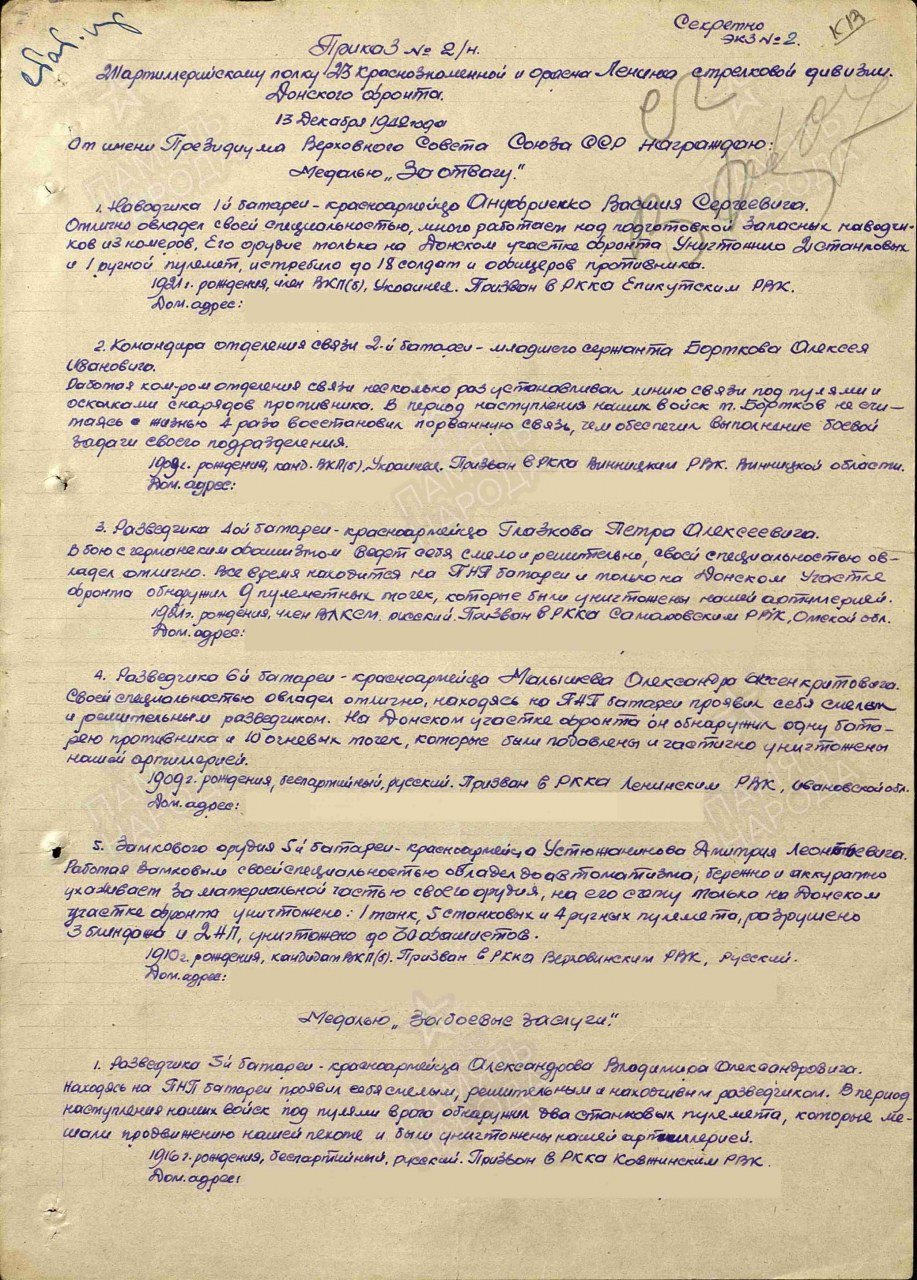 Секретно
экз № 2.
К 13
Приказ № 2/н.
211 артиллерийскому полку 23 Краснознаменной и ордена Ленина стрелковой дивизии.
Донского фронта.
13 Декабря 1942 года
От имени Президиума Верховного Совета Союза ССР награждаю:
Медалью „За отвагу."
1. Наводчика 1й батареи - красноармейца Ануфриенко Василия Сергеевича.
Отлично овладел своей специальностью, много работает над подготовкой запасных наводчи-
ков из номеров, Его орудие только на Донском участке фронта Уничтожило 2 станковых
и 1 ручной пулемет, истребило до 18 солдат и офицеров противника.
1921 г. рождения, член ВКП(б), Украинец. Призван в РККА РВК.
Дом. адрес:
2. Командира отделения связи 2-й батареи - младшего сержанта Борткова Алексея
Ивановича.
Работая ком-ром отделения связи несколько раз устанавливал линию связи под пулями и
осколками снарядов противника. В период наступления наших войск т. Бортков не счи-
таясь с жизнью 4 раза восстановил порванную связь, чем обеспечил выполнение боевой
задачи своего подразделения.
рождения, канд. ВКП(б), Украинец. Призван в РККА Винницким РВК. Винницкой области.
Дом. адрес:
3. Разведчика 4ой батареи - красноармейца Глазкова Петра Алексеевича.
В бою с германским фашизмом ведет себя смело и решительно, своей специальностью ов-
ладел отлично. Все время находится на ПНП батареи и только на Донском Участке
фронта обнаружил 9 пулеметных точек, которые были уничтожены нашей артиллерией.
1921г. рождения, член ВЛКСМ. русский. Призван в РККА Самаровским РВК, Омской обл.
Дом. адрес:
4. Разведчика 6й батареи - красноармейца Малышева Александра Аксенкритовича.
Своей специальностью овладел отлично, находясь на ПНП батареи проявил себя смелым
и решительным разведчиком. На Донском участке фронта он обнаружил одну бата-
рею противника и 10 огневых точек, которые были подавлены и частично уничтожены
нашей артиллерией.
1909 г. рождения, беспартийный, русский. Призван в РККА Ленинским РВК, Ивановской обл.
Дом. адрес:
5. Замкового орудия 5й батареи - красноармейца Устюжанинова Дмитрия Леонтьевича.
Работая замковым своей специальностью овладел до автоматизма; бережно и аккуратно
ухаживает за материальной частью своего орудия, на его счету только на Донском
участке фронта уничтожено: 1 танк, 5 станковых и 4 ручных пулемета, разрушено
3 блиндажа и 2 НП, уничтожено до 30 фашистов.
1910 г. рождения, кандидат ВКП(б). Призван в РККА Верховинским РВК, Русский.
Дом. адрес:
Медалью „За боевые заслуги."
1. Разведчика 3й батареи - красноармейца Александрова Владимира Александровича.
Находясь на ПНП батареи проявил себя смелым, решительным и находчивым разведчиком. В период
наступления наших войск под пулями врага обнаружил два станковых пулемета, которые ме-
шали продвижению нашей пехоте и были уничтожены нашей артиллерией.
1916 г. рождения, беспартийный, русский. Призван в РККА Ковжинским РВК.
Дом. адрес: